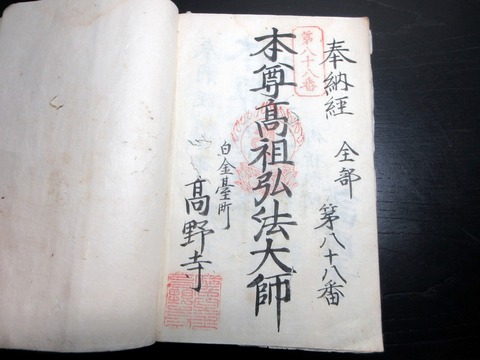 奉納經 全部 第八十八番
第八十八番
本尊髙祖弘法大師
白金臺町
髙野寺